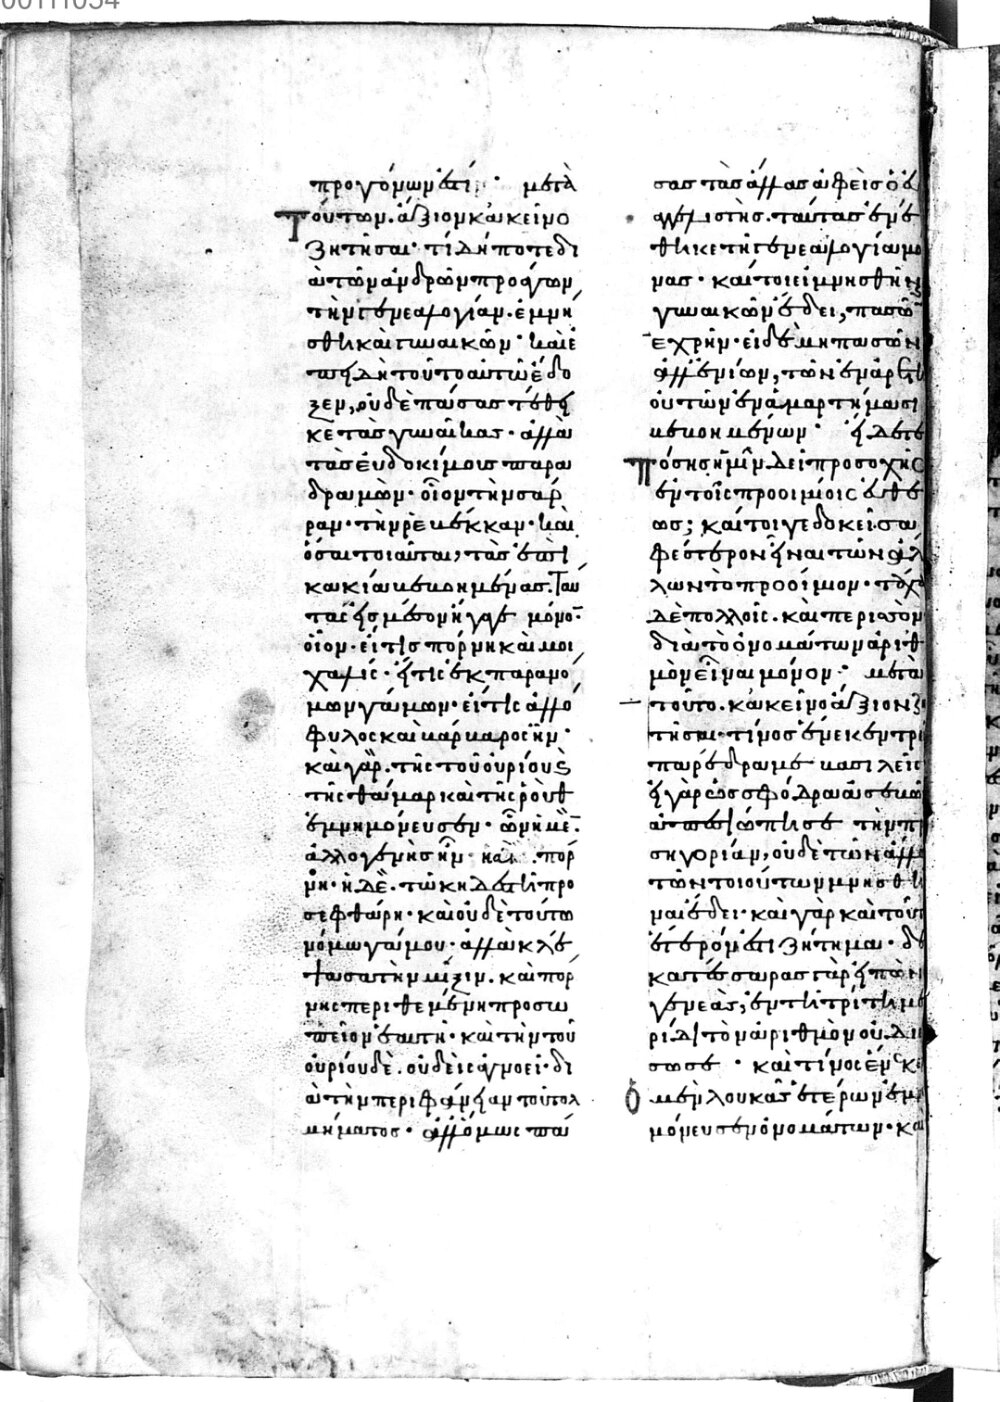 προγόνων ἐστί· μετὰ
τούτων. ἄξιον κἀκεῖνο
ζητῆσαι· τί δήποτε δι
ἀ τῶν ἀνδρῶν προάγων
τὴν γενεαλογίαν· ἐμνή
σθη καὶ γυναικῶν· καὶ ἐ
πειδὴ τοῦτο αὐτῶ ἔδο
ξεν, οὐδὲ πάσας τέθει
κε τὰς γυναῖκας· ἀλλὰ
τὰς εὐδοκίμους παρα
δραμὼν· οἷον τὴν σάρ
ραν· τὴν ρεβέκκαν· καὶ
ὅσαι τοιαῦται, τὰς ἐπὶ
κακία κεκοημένας. Ταύ
τας εἰς μέσον ἤγαγε μόνον
οἷον· εἴ τις πόρνη καὶ μοι
χαλίς· εἴ τις ἐκ παρανό
μων γάμων· εἴ τις ἀλλό
φυλος καὶ βάρβαρος ἦν·
καὶ γὰρ. τῆς τοῦ οὐρίου καὶ
τῆς θάμαρ καὶ τῆς ροὺθ
ἐμνημόνευσεν· ὧν ἡ μὲν
ἀλλογενὴς ἦν· ἡ δὲ. πόρ
νη· ἡ δὲ. τῶ κηδεστῆ προ
σεφθάρη· καὶ οὐδὲ τούτω
νόμω γάμου· ἀλλὰ κλέ
ψασα τὴν μίξιν. καὶ πόρ
νης περιθεμένη προσω
πεῖον ἑαυτῆ· καὶ τὴν τοῦ
οὐρίου δὲ. οὐδεὶς ἀγνοεῖ· δι
ὰ τὴν περιφάνειαν τοῦ τολ
μήματος· ἀλλ' ὅμως πά
σας τὰς ἄλλας ἀφεὶς ὁ εὐ
αγγελιστὴς. ταύτας ἐνέ
θηκε τῆ γενεαλογία μό
νας· καίτοι εἰ μνησθῆναι
γυναικῶν ἔδει, πασῶν
ἐχρῆν· εἰ δὲ μὴ πασῶν
ἀλλ' ἐνίων, τῶν ἐν ἀρετῆ
οὐ τῶν ἐν ἁμαρτήμασι
κεκοημένων· εἴδετε
πόσης ἡμῖν δεῖ προσοχῆς
ἐν τοῖς προοιμίοις εὐθέ
ως; καίτοι γε δοκεῖ σα
φέστερον εἶναι τῶν ἄλ
λων τὸ προοίμιον· τάχα
δὲ πολλοῖς. καὶ περιττὸν
διὰ τὸ ὀνομάτων ἀριθ
μὸν εἶναι μόνον· μετὰ
τοῦτο. κἀκεῖνο ἄξιον ζη
τῆσαι· τίνος ἕνεκεν τρεῖς
παρέδραμε βασιλεῖς
εἰ γὰρ ὡς σφόδρα ἀσεβῶν
ἀπεσιώπησε τὴν προ
σηγορίαν, οὐδὲ τῶν ἄλλων
τῶν τοιούτων μνησθῆ
ναι ἔδει· καὶ γὰρ καὶ τοῦτο
ἕτερόν ἐστι ζήτημα· δε
κατέσσαρας γὰρ εἰπὼν
γενεὰς, ἐν τῆ τρίτη με
ρίδι τὸν ἀριθμὸν οὐ διέ
σωσε· καὶ τίνος ἕνεκεν
ὁ μὲν λουκᾶς ἑτέρων ἐμνη
μόνευσεν ὀνομάτων· καὶ